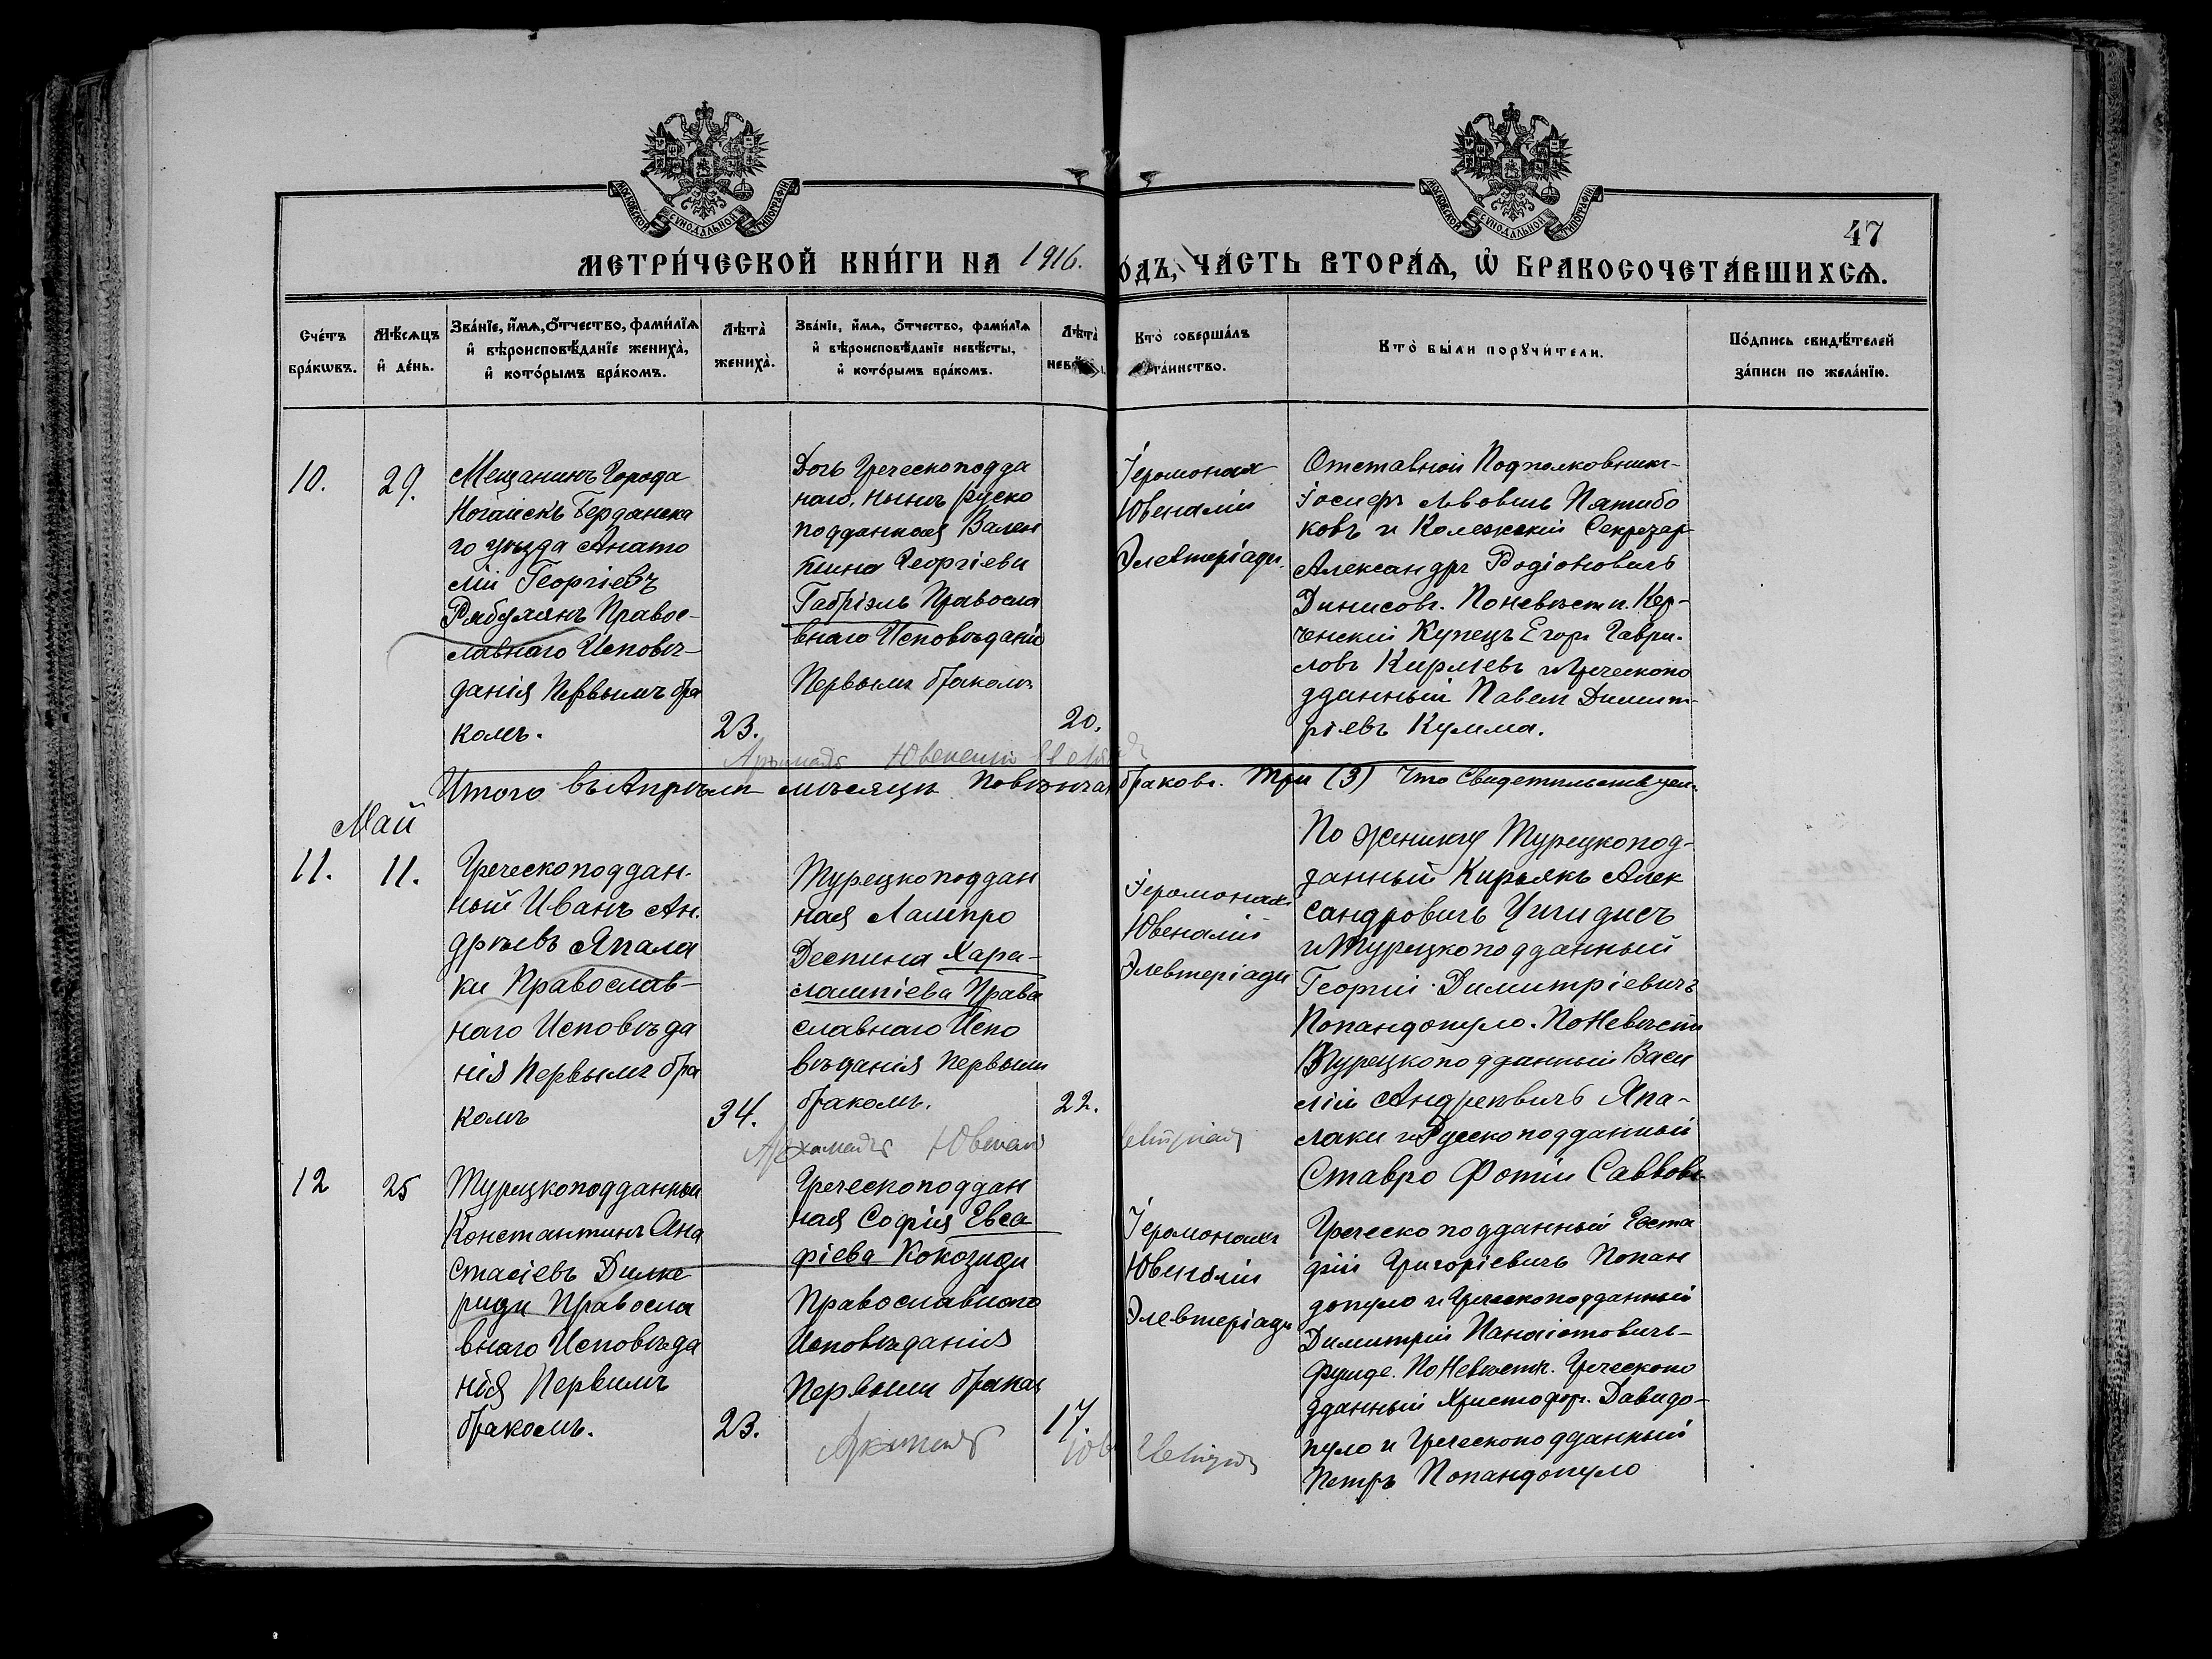 МОСКОВСКОЙ СУНОДАЛЬНОЙ ТИПОГРАФІИ
МОСКОВСКОЙ СУНОДАЛЬНОЙ ТИПОГРАФІИ
47
МЕТРИ́ЧЕСКОЙ КНИ́ГИ НА 1916. ОДЪ, ЧА́СТЬ ВТОРА́Ѧ, Ѡ҆ БРАКОСОЧЕТА́ВШИХСѦ.
Сче́тъ бра́кѡвъ.
Мѣ́сѧцъ и҆ де́нь.
Зва́нїе, и҆́мѧ, ѻ҆́тчество, фами́лїѧ и҆ вѣроисповѣ́данїе жениха̀, и҆ кото́рымъ бра́комъ.
Лѣта̀ жениха̀.
Зва́нїе, и҆́мѧ, ѻ҆́тчество, фами́лїѧ и҆ вѣроисповѣ́данїе невѣ́сты, и҆ кото́рымъ бра́комъ.
Лѣта̀
Кто̀ соверша́лъ та́инство.
Кто̀ бы́ли порꙋчи́тели.
По́дпись свидѣ́телей за́писи по жела́нїю.
10.
29.
Мещанинъ Города
Ногайскъ Бердянска
го уѣзда Анато
лій Георгіевъ
Рабулянъ Правос-
лавнаго Исповѣ-
данія Первымъ бра
комъ.
23.
Дочь Греческоподда
наго, нынѣ руско
подданная Вален
тина Георгіеви
Габріэль Правосла
внаго Исповѣданія
Первымъ бракомъ
20.
Іеромонах
Ювеналій
Элевтеріади.
Отставной Подполковникъ
Іосифъ Львовичъ Пятибо
ковъ и Колежскій Секретар
Александръ Родіоновичъ
Динисовъ. По невѣсти. Кер-
ченскій Купецъ Егоръ Гаври-
ловъ Кирліевъ и Греческопо
дданный Павелъ Димит-
ріевъ Кулма.
Ювеналій
Итого въ Апрѣли мѣсяцѣ Повѣнча браковъ. Три (3) Что Свидетельствуем.
Май
11.
11.
Греческоподдан-
ный Иванъ Ан-
дрѣевъ Япала
ки Православ-
наго Исповѣда
нія Первымъ бра
комъ
34.
Турецкоподдан
ная Лампро
Деспина Хара-
лампіева Право
славнаго Испо
вѣданія Первымъ
бракомъ.
22.
Іеромонахъ
Ювеналій
Элевтеріади
По жениху Турецкопод-
данный Кирьякъ Алек
сандровичъ
и Турецкоподданный
Георгій Димитріевичъ
Попандопуло. По Невѣсти
Турецкоподданный Васи
лій Андреевичъ Япа-
лаки и Русскоподданный
Ставро Фотій Саввовъ
Ювенал
12
25
Турецкоподданный
Константинъ Ана
стасіевъ Дилке
риди Правосла
внаго Исповѣда
нія Первымъ
бракомъ.
23.
Греческоподдан
ная Софія Евста
фіева Кокозиди
Православнаго
Исповѣданія
Первымъ бракам
17
Іеромонахъ
Ювеналій
Элевтеріади
Греческоподданный Евста
фій Григоріевичъ Попан
допуло и Греческоподданный
Димитрій Панаіотовичъ
По Невѣстѣ. Греческопо
дданный Христофоръ. Давидо-
пуло и Греческоподданный
Петръ Попандопуло